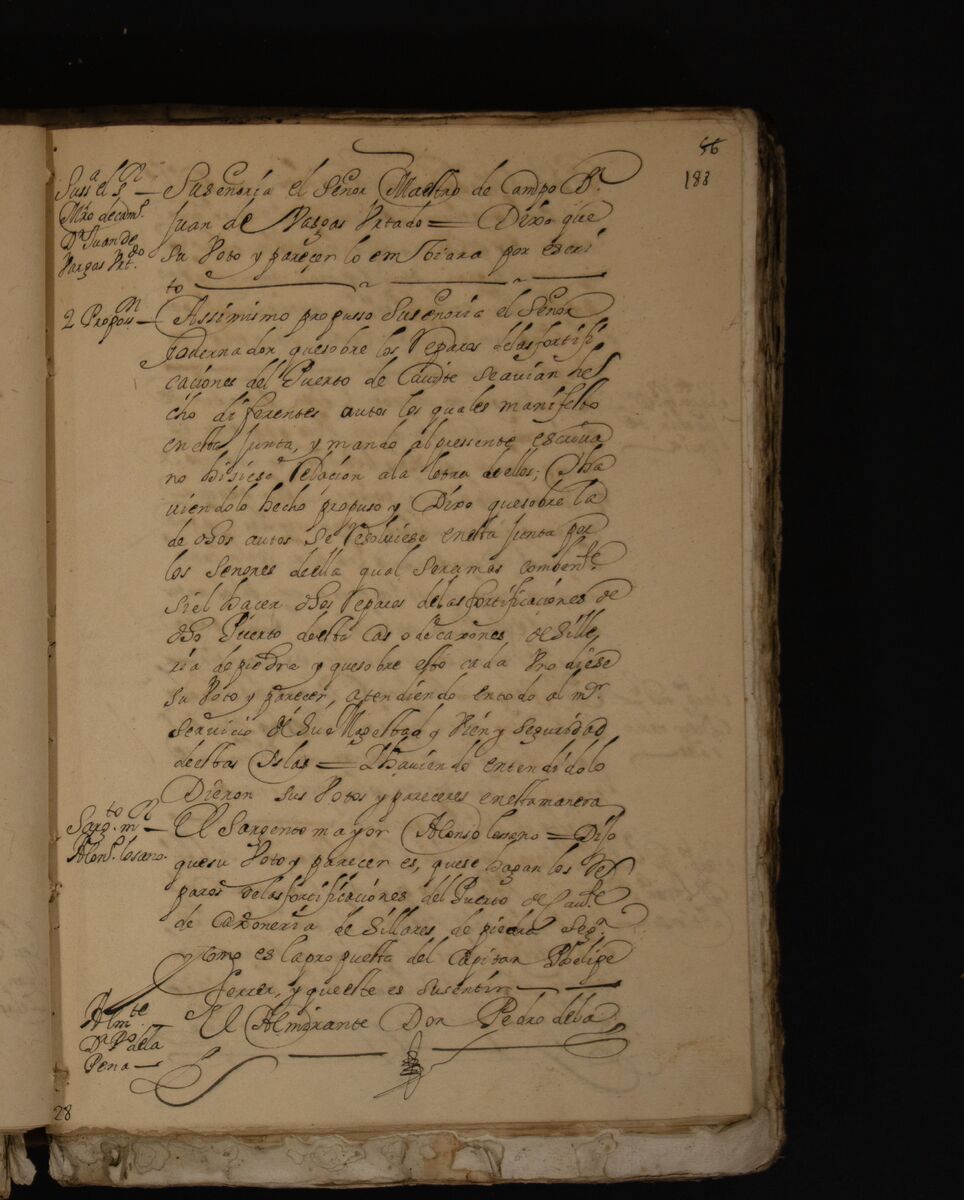 56
183
Susᵃ el Sʳ
Mro de camᵖ.
Dⁿ Juan de
Vargas Vrtᵈᵒ.
Suseñoria el Señor Maestro de Campo Dⁿ.
Juan de Vargas Vrtado = Dixo que
su Voto y parecer lo embiara por escri
to
2 Proposⁿ
Assimismo propusso Suseñoria el Señor
Governador, quesobre los Reparos delasfortifi
caciones del Puerto de Cavite seavian he
cho diferentes autos los quales manifesto
enesta Junta, y mando alpressente escriva
no hisiese Relacion ala letra deellos; Yha
viendolo hecho propuso y Dixo quesobre la
de dhos autos se Resolviese enesta Junta por
los senores deella qual seramas combenᵗᵉ
siel hacer dhos Reparos delasfortificaciones de
dho Puerto deestacas o decaxones de Sille
ria depiedra y quesobre esto cada Vno diese
su Voto y parecer, atendiendo entodo al mʳ
servicio de Su Magestad y Vien y seguridad
deestas Yslas = Yhaviendo entendidolo
Dieron sus Votos y pareceres enestamanera
Sargᵗᵒ. mʳ
Alonsᵒ. losano.
El Sargentomayor Alonso loseno = Dijo
quesu Voto y parecer es, quese hagan los Re
paros delasfortificaciones del Puerto de Cauᵗᵉ
de Caxoneria de Sillares de piedra segⁿ.
y como es lapropuesta del Capitan Phelipe
ferrer, y queeste es susentir
Almᵗᵉ.
Dⁿ Pᵒ dela
Pena
El Almirante Don Pedro dela
28